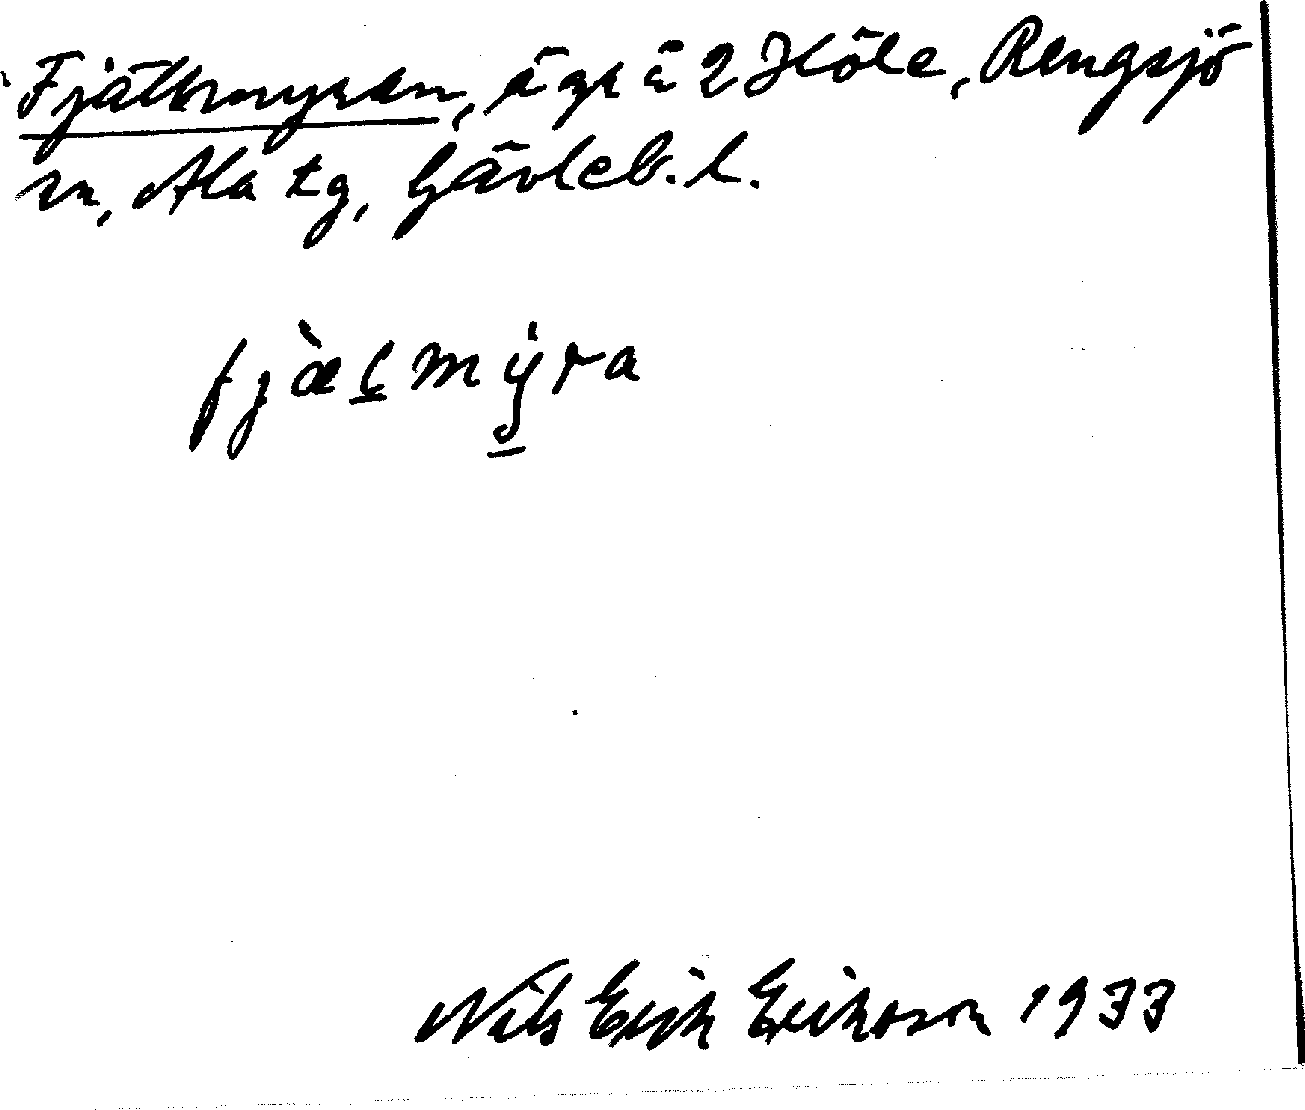 Fjällmyran, äga å 2 Höle, Rengsjö
sn, Ala tg, Gävleb. l.
fjæ̀lmy̠ra
Nils Erik Eriksson 1933